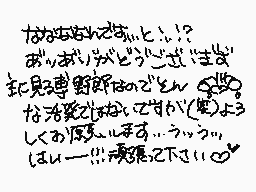 なななななんですぃぃと!!!?
ありありがとうございます
主に見る専野郎なのでそん
な活発ではないですが(笑)よろ
しくお願いします…うっう…
はい――!!!頑張って下さい♡